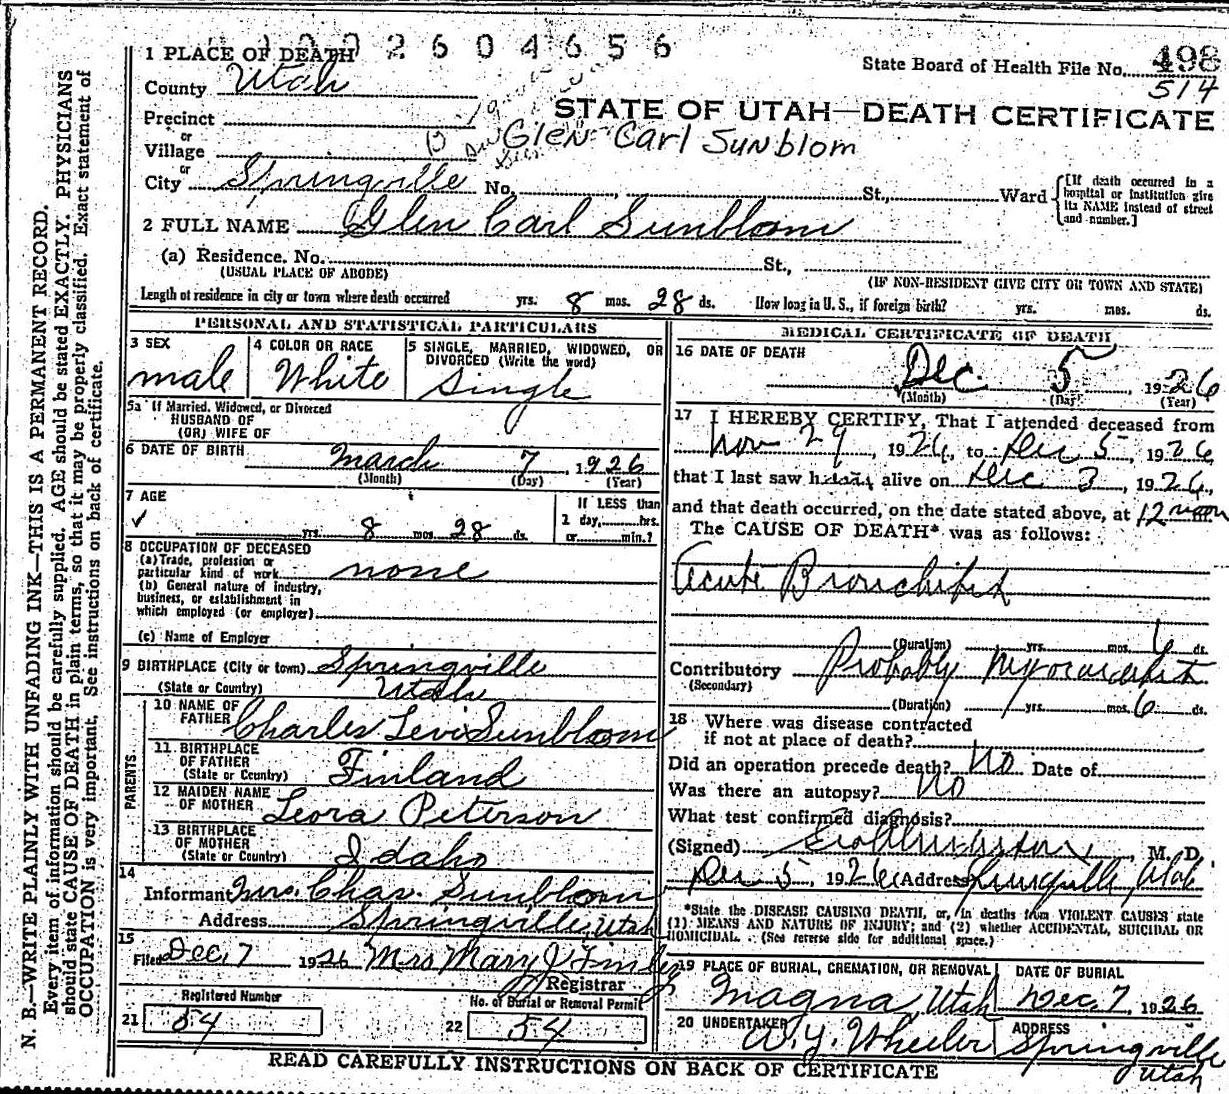 1002604656
1 PLACE OF DEATH
State Board of Health File No. 498
514
County Utah
STATE OF UTAH—DEATH CERTIFICATE
Precinct
or
Glen Carl Sunblom
Village
or
City Springville No. St., Ward
[If death occurred in a hospital or institution give its NAME instead of street and number.]
2 FULL NAME Glen Carl Sunbloom
(a) Residence. No. St.,
(USUAL PLACE OF ABODE) (IF NON-RESIDENT GIVE CITY OR TOWN AND STATE)
Length of residence in city or town where death occurred yrs. 8 mos. 28 ds. How long in U. S., if foreign birth? yrs. mos. ds.
PERSONAL AND STATISTICAL PARTICULARS
3 SEX
male
4 COLOR OR RACE
White
5 SINGLE, MARRIED, WIDOWED, OR
DIVORCED (Write the word)
Single
5a If Married, Widowed, or Divorced
HUSBAND OF
(OR) WIFE OF
6 DATE OF BIRTH March 7, 1926
(Month) (Day) (Year)
7 AGE
yrs. 8 mos. 28 ds.
If LESS than
1 day, hrs.
or min.?
8 OCCUPATION OF DECEASED
(a) Trade, profession or
particular kind of work none
(b) General nature of industry,
business, or establishment in
which employed (or employer)
(c) Name of Employer
9 BIRTHPLACE (City or town) Springville
(State or Country) Utah
PARENTS
10 NAME OF
FATHER Charles Levi Sunbloom
11 BIRTHPLACE
OF FATHER
(State or Country) Finland
12 MAIDEN NAME
OF MOTHER Leora Peterson
13 BIRTHPLACE
OF MOTHER
(State or Country) Idaho
14
Informant Mrs. Chas. Sunbloom
Address Springville, Utah
15
Filed Dec. 7 1926 Mrs Mary J Finley
Registrar
Registered Number
21 54
No. of Burial or Removal Permit
22 54
MEDICAL CERTIFICATE OF DEATH
16 DATE OF DEATH
Dec 5, 1926
(Month) (Day) (Year)
17 I HEREBY CERTIFY, That I attended deceased from
Nov 29, 1926, to Dec 5, 1926
that I last saw him alive on Dec 3, 1926,
and that death occurred, on the date stated above, at 12 noon m.
The CAUSE OF DEATH* was as follows:
Acute Bronchitis
(Duration) yrs. mos. 6 ds.
Contributory Probably Myocarditis
(Secondary)
(Duration) yrs. mos. 6 ds.
18 Where was disease contracted
if not at place of death?
Did an operation precede death? No Date of
Was there an autopsy? No
What test confirmed diagnosis?
(Signed) , M. D.
Dec 5, 1926 (Address) Springville, Utah
*State the DISEASE CAUSING DEATH, or, in deaths from VIOLENT CAUSES state
(1) MEANS AND NATURE OF INJURY; and (2) whether ACCIDENTAL, SUICIDAL OR
HOMICIDAL. (See reverse side for additional space.)
19 PLACE OF BURIAL, CREMATION, OR REMOVAL
Magna, Utah
DATE OF BURIAL
Dec. 7 1926
20 UNDERTAKER
W. Y. Wheeler
ADDRESS
Springville
Utah
READ CAREFULLY INSTRUCTIONS ON BACK OF CERTIFICATE
N. B.—WRITE PLAINLY WITH UNFADING INK—THIS IS A PERMANENT RECORD.
Every item of information should be carefully supplied. AGE should be stated EXACTLY. PHYSICIANS
should state CAUSE OF DEATH in plain terms, so that it may be properly classified. Exact statement of
OCCUPATION is very important. See instructions on back of certificate.